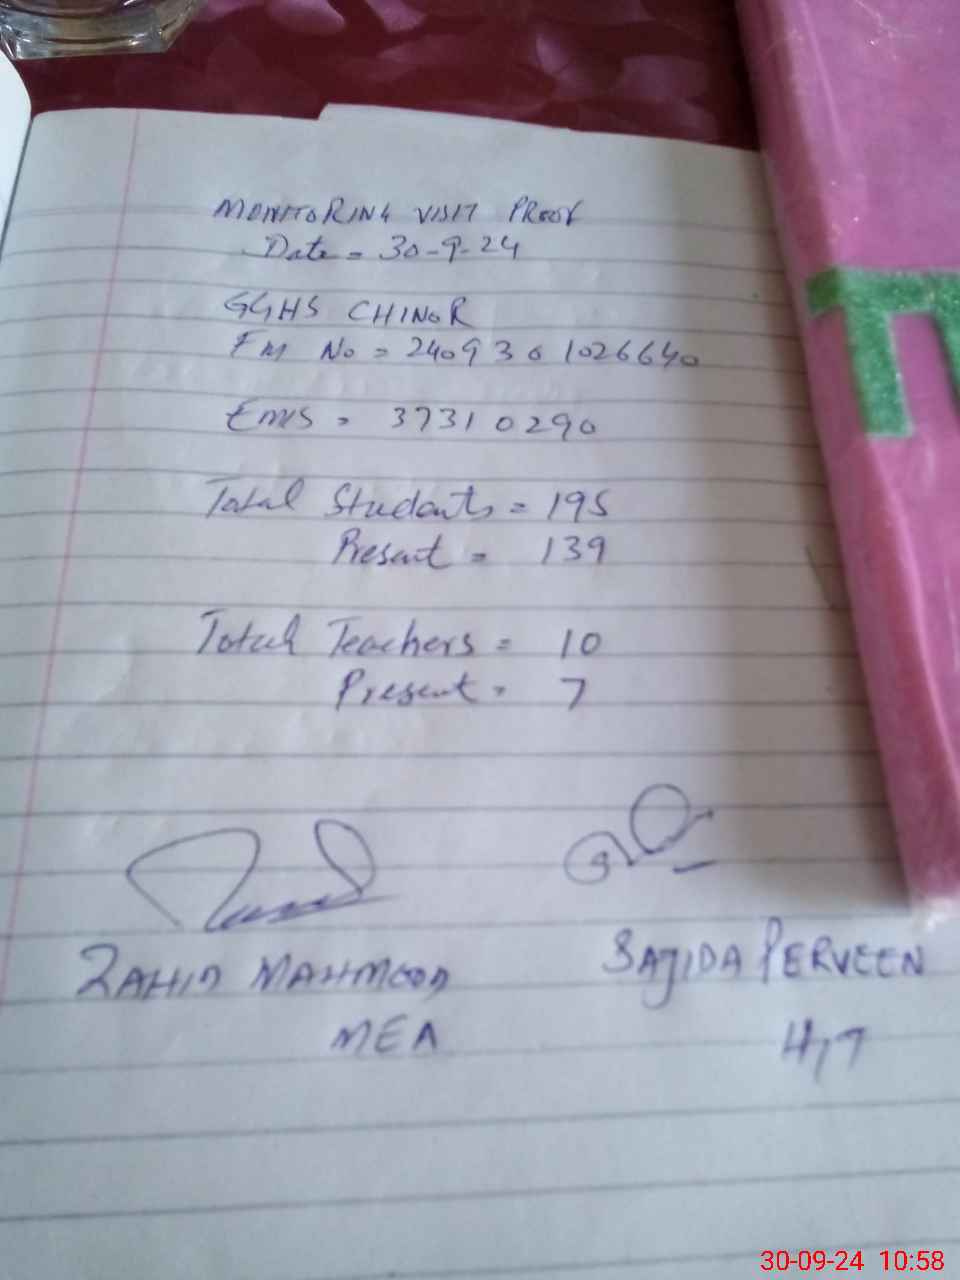 MONITORING VISIT PROOF
Date = 30-9-24
GGHS CHINOR
FM No = 2409301026640
EMIS = 37310290
Total Students = 195
Present = 139
Total Teachers = 10
Present = 7
ZAHID MAHMOOD
SAJIDA PERVEEN
MEA
H/T
30-09-24 10:58